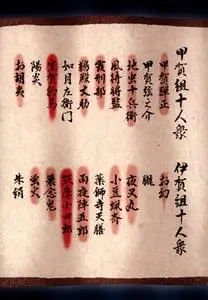 甲賀組十人衆
甲賀彈正
甲賀弦之介
地虫十兵衛
風待将監
霞刑部
鵜殿丈助
如月左衛門
室賀豹馬
陽炎
お胡夷
伊賀組十人衆
お幻
朧
夜叉丸
小豆蝋斎
薬師寺天膳
雨夜陣五郎
筑摩小四郎
蓑念鬼
蛍火
朱絹